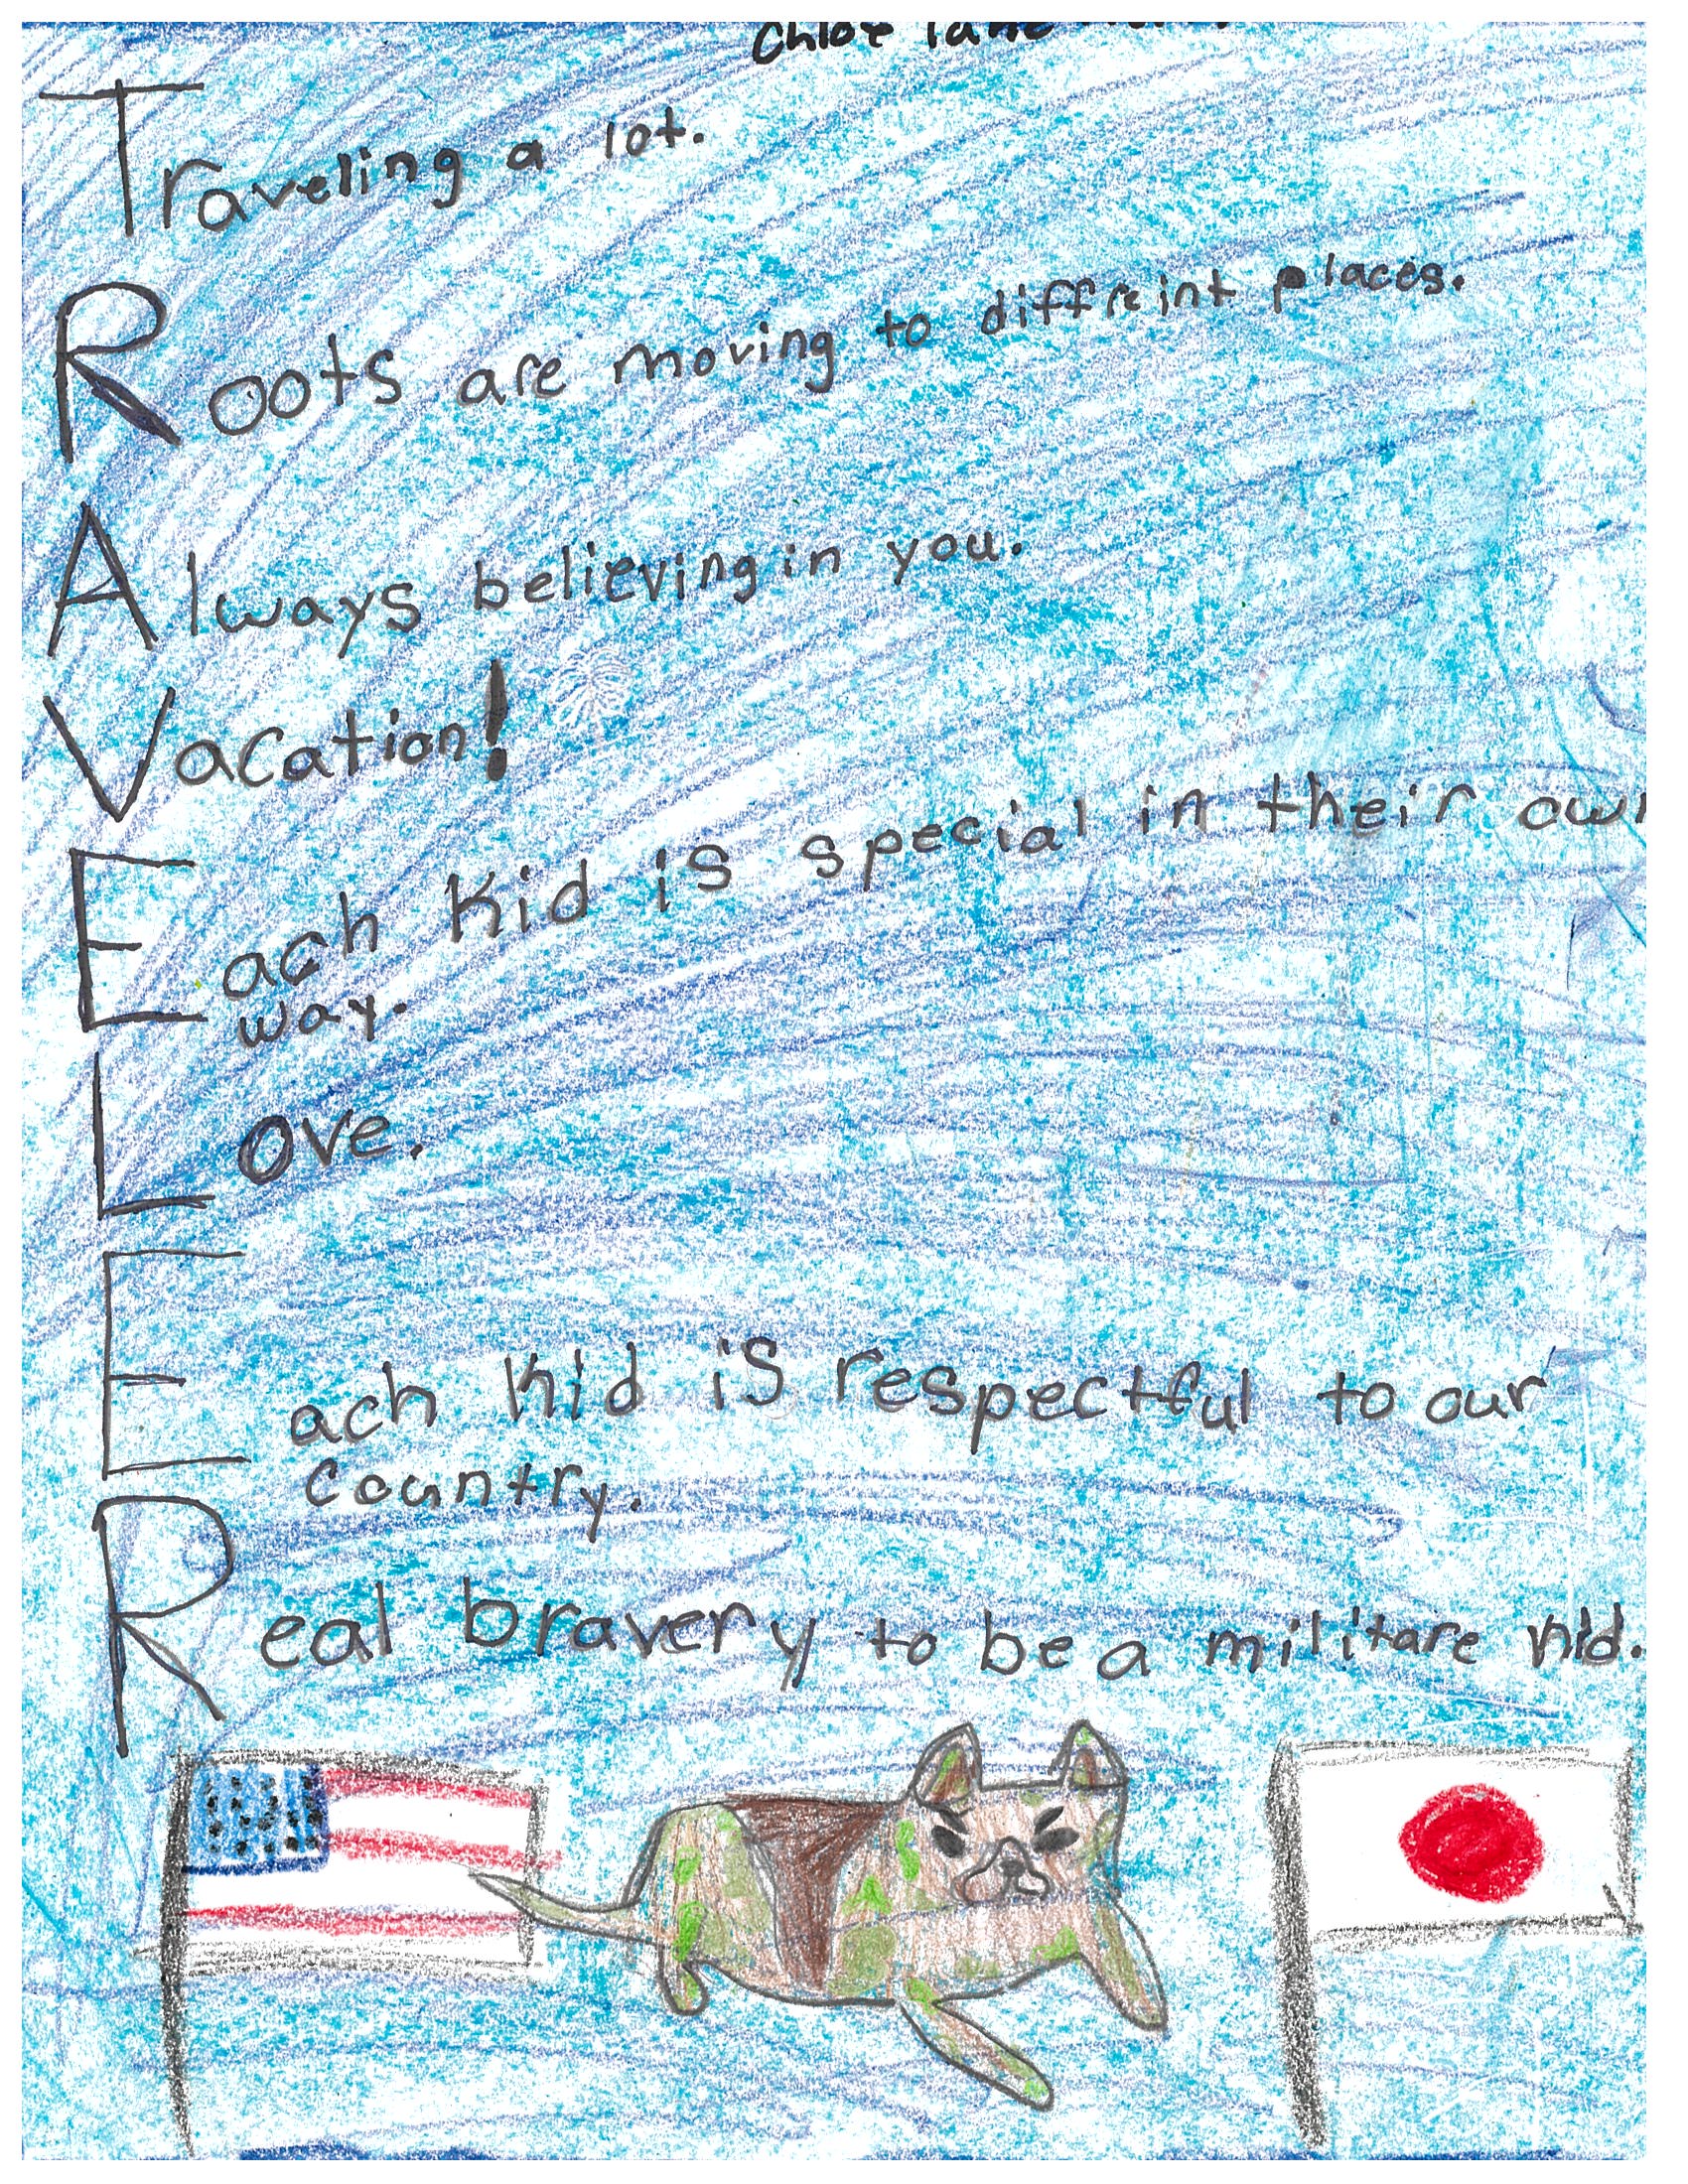 Chloe
Traveling a lot.
Roots are moving to diffreint places.
Always believing in you.
Vacation!
Each Kid is special in their own
way.
Love.
Each Kid is respectful to our
country.
Real bravery to be a militare kid.